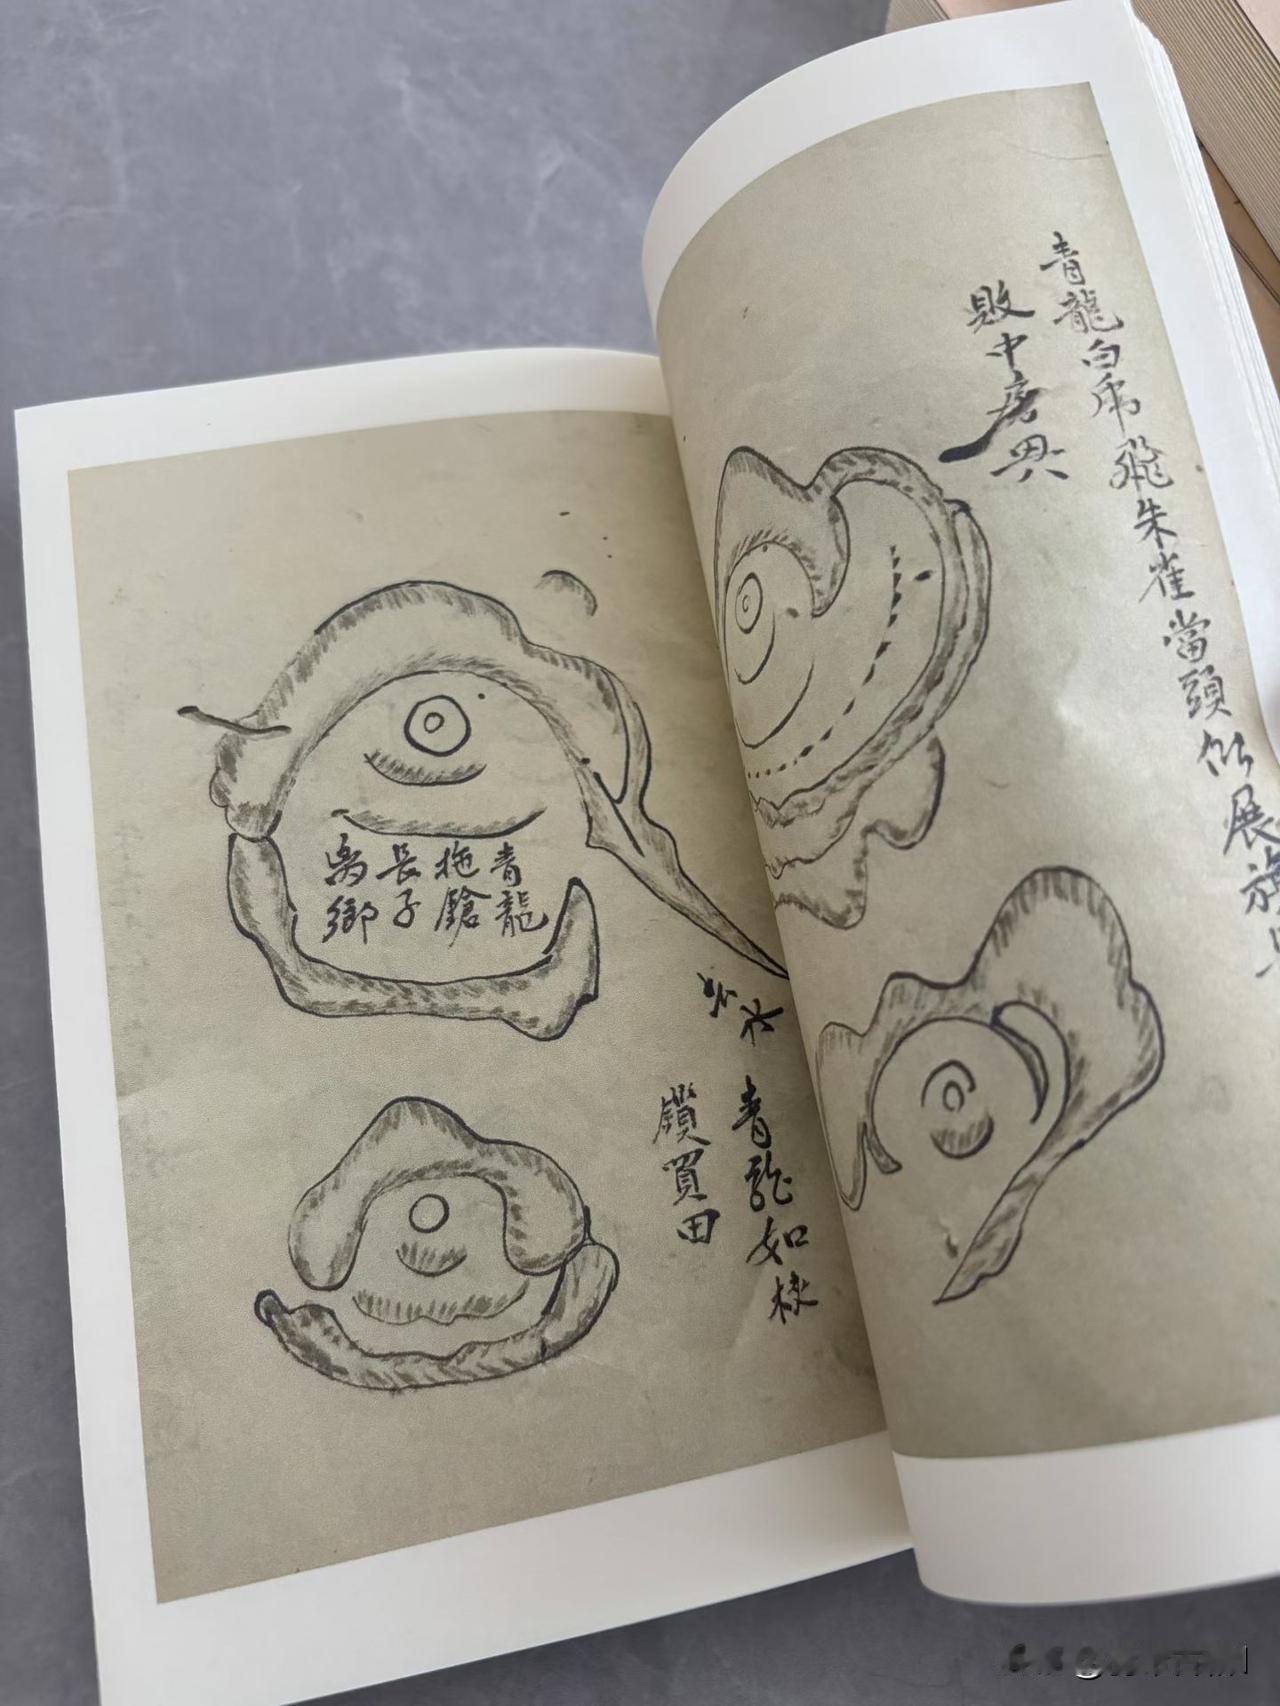 青龍白虎飛朱雀當頭似展旗
敗中房

青龍
拖鎗
長子
离鄉
水
青龍如梭
鑽買田